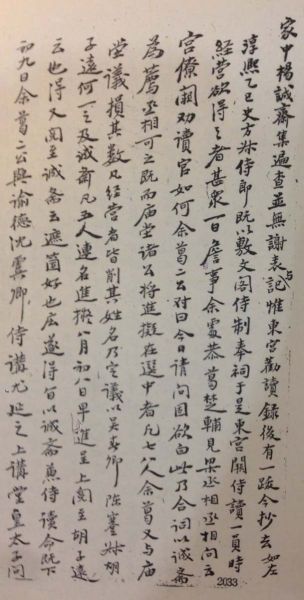 家中楊誠斋集遍查並無謝表與記惟東宮勸讀錄後有一跋今抄去如左
淳熙乙巳史方叔侍郎既以敷文閣侍制奉祠于是東宮闕侍讀一員時
經營欲得之者甚眾一日詹事余處恭葛楚輔見梁丞相丞相问云
宮僚闕勸读官如何余葛二公对曰今日请问固欲白此乃合词以诚斋
為薦丞相可之既而庙堂诸公將進擬在選中者凡七八人余葛又与庙
堂議損其數凡經營者皆削其姓名乃定議以吴春卿 陳蕃叔胡
子遠何一之及诚斋凡五人連名進擬八月初八日早進呈上阅至胡子遠
云也得又阅至诚斋云遮箇好也庅遂得旨以诚斋蒹侍讀命既下
初九日余葛二公與谕德沈虞卿侍講尤延之上講堂皇太子问
2033